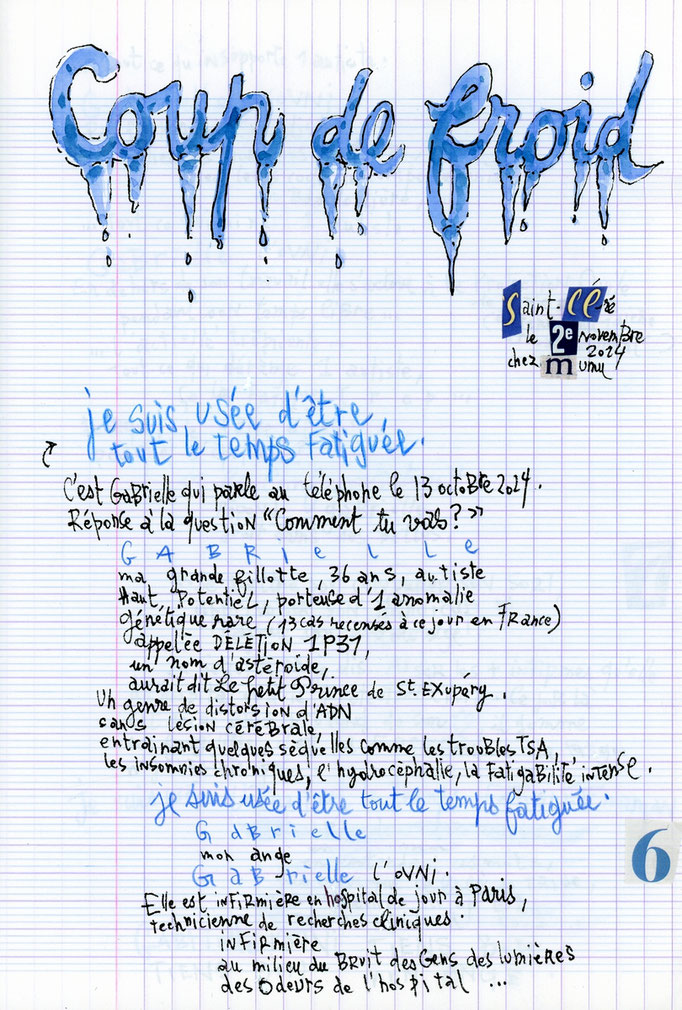 Coup de froid
Saint-Céré
le 2e novembre
2024
chez mumu
je suis usée d'être
tout le temps fatiguée.
C'est Gabrielle qui parle au téléphone le 13 octobre 2024.
Réponse à la question "Comment tu vas?"
GABRIELLE
ma grande fillotte, 36 ans, autiste
Haut Potentiel, porteuse d'1 anomalie
génétique rare (13 cas recensés à ce jour en France)
appelée DÉLÉTION 1P31,
un nom d'astéroïde,
aurait dit Le Petit Prince de St. Exupéry.
Un genre de distorsion d'ADN
sans lésion cérébrale,
entrainant quelques séquelles comme les troubles TSA,
les insomnies chroniques, l'hydrocéphalie, la fatigabilité intense.
je suis usée d'être tout le temps fatiguée.
Gabrielle
mon ange
Gabrielle l'OVNI.
6
Elle est infirmière en hospital de jour à Paris,
technicienne de recherches cliniques.
infirmière
au milieu du Bruit des Gens des lumières
des odeurs de l'hospital ...